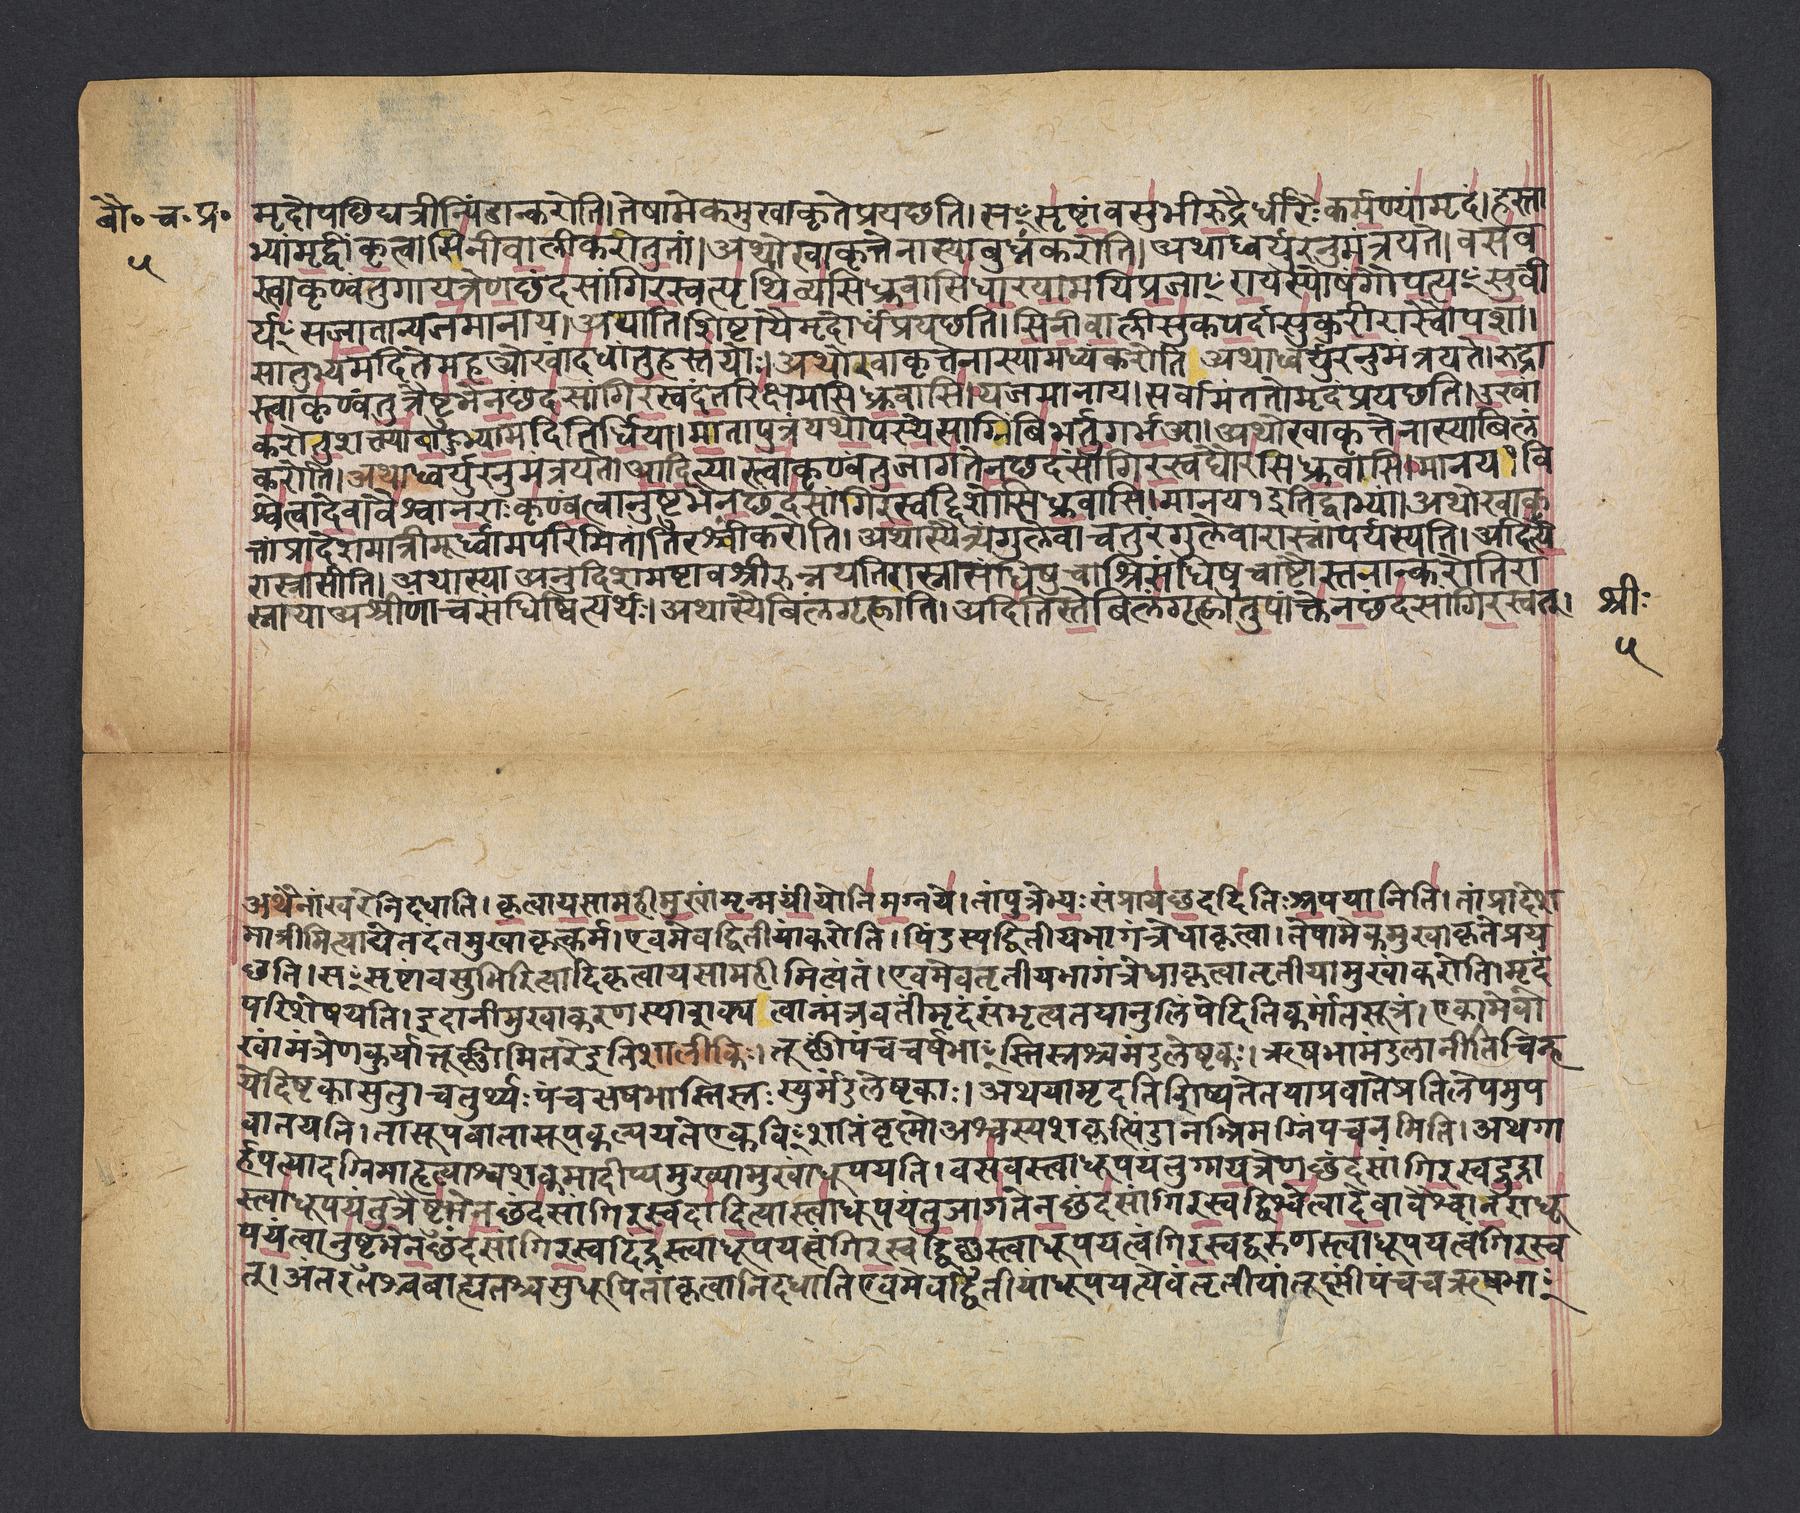 बौ॰ च॰ प्र॰
५
मृदोपछिद्यत्रीन्पिंडान्करोति।तेषामेकमुखाकृतेप्रयछति।सꣳसृष्टांवसुभीरुद्रैर्धीरैःकर्मण्यांमृदं।हस्ता
भ्यांमृद्वींकृत्वासिनीवालीकरोतुतां।अथोखाकृत्तेनास्याबुध्नंकरोति।अथाध्वर्युरनुमंत्रयते।वसव
स्त्वाकृण्वंतुगायत्रेणछंदसांगिरस्वत्पृथिव्यसिध्रुवासिधारयामयिप्रजाꣳरायस्पोषंगौपत्यꣳसुवी
र्यꣳसजातान्यजमानाय।अथाति।शिष्टायैमृदोर्धंप्रयछति।सिनीवालीसुकपर्दासुकुरीरास्वौपशा।
सातुभ्यमदितेमहओखांदधातुहस्तयोः।अथोखाकृत्तेनास्यामध्यंकरोति अथाध्वर्युरनुमंत्रयते।रुद्रा
स्त्वाकृण्वंतुत्रैष्टुभेनछंदसांगिरस्वदंतरिक्षमसिध्रुवासि।यजमानाय।सर्वामंततोमृदंप्रयछति।उखां
करोतुशक्त्याबाहुभ्यामदितिर्धिया।मातापुत्रंयथोपस्थेसाग्निंबिभर्तुगर्भआ।अथोखाकृत्तेनास्याबिलं
करोति।अथाध्वर्युरनुमंत्रयते।आदित्यास्त्वाकृण्वंतुजागतेनछंदसांगिरस्वद्द्यौरसिध्रुवासि।मानय१वि
श्वेत्वादेवावैश्वानराःकृण्वंत्वानुष्टुभेनछंदसांगिरस्वद्दिशोसिध्रुवासि।मानय१इतिद्वाभ्यां।अथोखाकृ
त्तांप्रादेशमात्रीमूर्ध्वामपरिमितांतिरश्चींकरोति।अथास्यैत्र्यंगुलेवाचतुरंगुलेवारास्नांपर्यस्यति।अदित्यै
रास्नासीति।अथास्याअनुदिशमष्टावश्रीरुन्नयतिरास्नासंधिषुचाश्रिसंधिषुचाष्टौस्तनान्करोतिरा
स्नायाअश्रीणांचसंधिष्वित्यर्थः।अथास्यैबिलंगृह्णाति।अदितिस्तेबिलंगृह्णातुपांक्तेनछंदसांगिरस्वत्।
श्रीः
५
अथैनांखरेनिदधाति।कृत्वायसामहीमुखांमृन्मयींयोनिमग्नये।तांपुत्रेभ्यःसंप्रायछददितिःश्रपयानिति।तांप्रादेश
मात्रीमित्यायेतदंतमुखाकृत्कर्म।एवमेवद्वितीयांकरोति।पिंडस्यद्वितीयभागंत्रेधाकृत्वा।तेषामेकमुखाकृतेप्रय
छति।सꣳसृष्टांवसुभिरित्यादिकृत्वायसामहीमित्यंतं।एवमेवतृतीयभागंत्रेधाकृत्वातृतीयामुखांकरोति।मृदं
परिशेषयति।इदानीमुखाकरणस्याशक्य त्वान्मंत्रवतींमृदंसंभृत्यतयानुलिंपेदितिकर्मांतसूत्रं।एकामेवो
खांमंत्रेणकुर्यात्तूष्णीमितरेइतिशालीकिः।तूष्णींपंचचर्षभाꣳस्तिस्रश्चमंडलेष्टकाः।ऋषभामंडलानीतिचिन्ह
येदिष्टकासुतु।चतुर्थ्यःपंचऋषभास्तिस्रःस्युर्मंडलेष्टकाः।अथयामृदतिशिष्यतेतयाप्रवातेप्रतिलेपमुप
वातयति।तासूपवातासूपकल्पयतेएकविꣳशतिंवृष्णोअश्वस्यशकृत्पिंडानश्निमग्निंपचनमिति।अथगा
र्हपत्यादग्निमाहृत्याश्वशकृमादीप्यमुख्यामुखांधूपयति।वसवस्त्वाधूपयंतुगायत्रेणछंदसांगिरस्वद्रुद्रा
स्त्वाधूपयंतुत्रैष्टुभेनछंदसांगिरस्वदादित्यास्त्वाधूपयंतुजागतेनछंदसांगिरस्वद्विश्वेत्वादेवावैश्वानराधू
पयंत्वानुष्टुभेनछंदसांगिरस्वदिंद्रस्त्वाधूपयत्वंगिरस्वद्विष्णुस्त्वाधूपयत्वंगिरस्वद्वरुणस्त्वाधूपयत्वंगिरस्व
त्।अंतरतश्चबाह्यतश्चसुधूपितांकृत्वानिदधातिएवमेवद्वितीयांधूपयत्येवंतृतीयांतूष्णींपंचचऋषभाꣳ